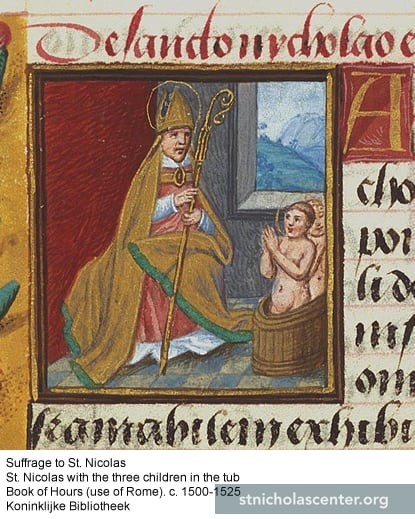 De sancto nycholao
A
cho
por
li de
inf
om
amabilem exhibi
Suffrage to St. Nicolas
St. Nicolas with the three children in the tub
Book of Hours (use of Rome). c. 1500-1525
Koninklijke Bibliotheek
stnicholascenter.org